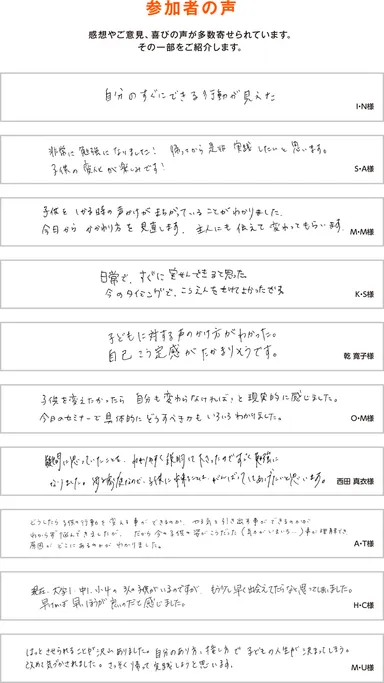 参加者の声
感想やご意見、喜びの声が多数寄せられています。
その一部をご紹介します。
自分のすぐにできる行動が見えた
I・N様
非常に勉強になりました! 帰ってから是非 実践 したいと思います。
子供の変化が楽しみです!
S・A様
子供をしかる時の声かけがまちがっていることがわかりました。
今日から かかわり方を見直します。主人にも伝えて変わってもらいます。
M・M様
日常で、すぐに実せんできると思った
今のタイミングで、こうえんをきけてよかったである
K・S様
子どもに対する声のかけ方がわかった。
自己こう定感がたかまりそうです。
乾 寛子様
子供を変えたかったら 自分も変わらなければっと現実的に感じました。
今日のセミナーで具体的にどうすべきかもいろいろわかりました。
O・M様
疑問に思っていたことを、わかりやすく説明して下さったのですごく勉強に
なりました。 家庭なので、子供に 、がんばってしてあげたいと思います。
西田 真衣様
どうしたら子供の行動を変える事ができるのか、やる気を引き出す事ができるのかが
わからず悩んできましたが、だから今の子供の姿がこうだった( )事が理解でき、
原因がどこにあるのかがわかりました。
A・T様
現在、大学1・中1・小4の3人の子供がいるのですが、もう少し早く出会えてたらなと思ってしまいました。
早ければ早いほうが良いのだと感じました。
H・C様
はっとさせられることが沢山ありました。自分のあり方、接し方で子どもの人生が決まってしまう。
改めて気づかされました。さっそく帰って実践しようと思います。
M・U様